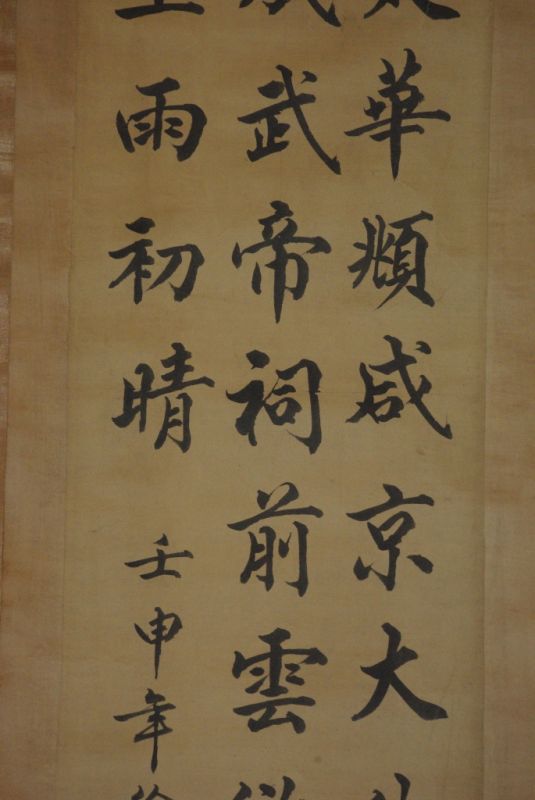 華頫咸京大
武帝祠前雲
雨初晴
壬申年